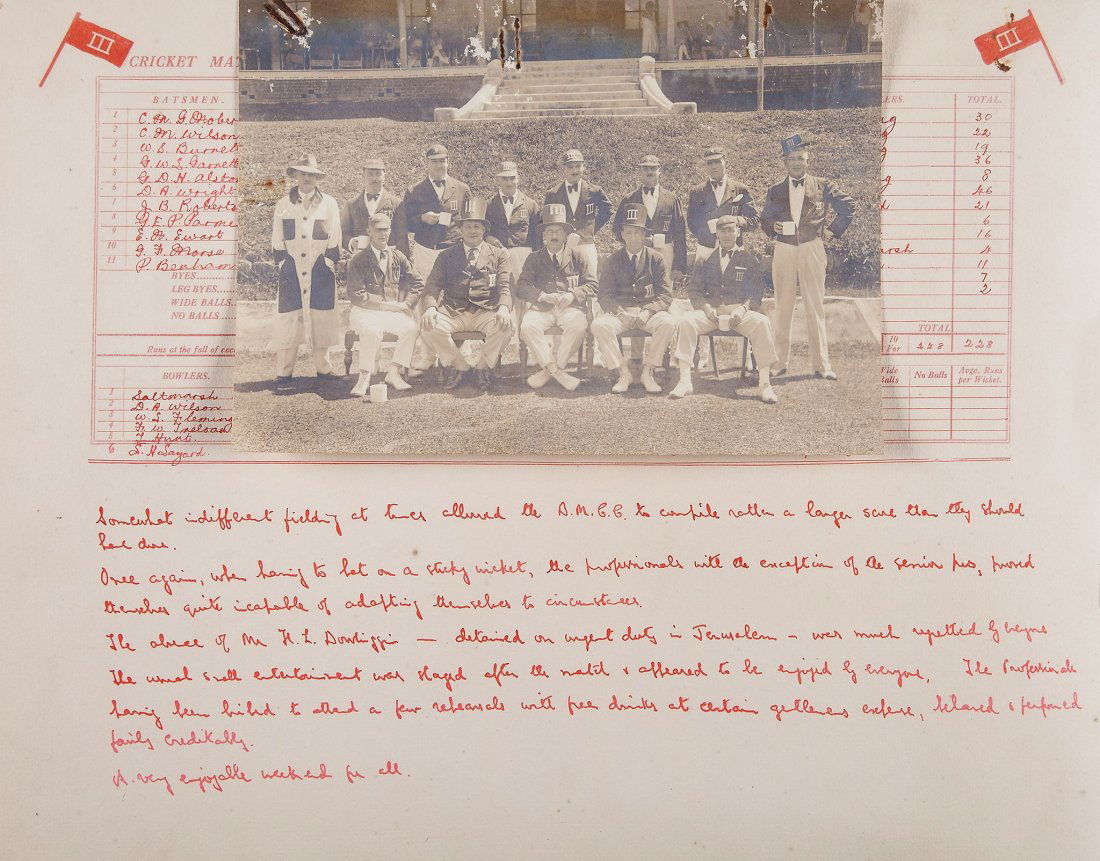 III
III
CRICKET MA
BATSMEN.
TOTAL.
1 C. M. G. 30
2 C. M. Wilson 22
3 W. S. Burnett 19
4 G. W. S. Garnett 36
5 G. D. H. Alston 8
6 D. A. Wright 46
7 J. B. Roberts 21
8 E. P. 6
9 E. N. Ewart 16
10 G. F. Morse 4
11 P. Benham 11
BYES 7
LEG BYES 2
WIDE BALLS
NO BALLS
TOTAL
Runs at the fall of eac 10 For 228 228
BOWLERS. Wide Balls No Balls Avge. Runs per Wicket.
1 Saltmarsh
2 D. A. Wilson
3 W. S. Fleming
4 W. Treloar
5 Hunt
6
Somewhat indifferent fielding at times allowed the A.M.C.C. to compile rather a larger score than they should
have done.
Once again, when having to bat on a sticky wicket, the professionals with the exception of the senior pro, proved
themselves quite incapable of adapting themselves to circumstances.
The absence of Mr H. L. Dowbiggin — detained on urgent duty in Jerusalem – was much regretted by everyone
The usual small entertainment was staged after the match & appeared to be enjoyed by everyone. The Professionals
having been bribed to attend a few rehearsals with free drinks at certain gentlemens expense, behaved & performed
fairly creditably.
A very enjoyable weekend for all.